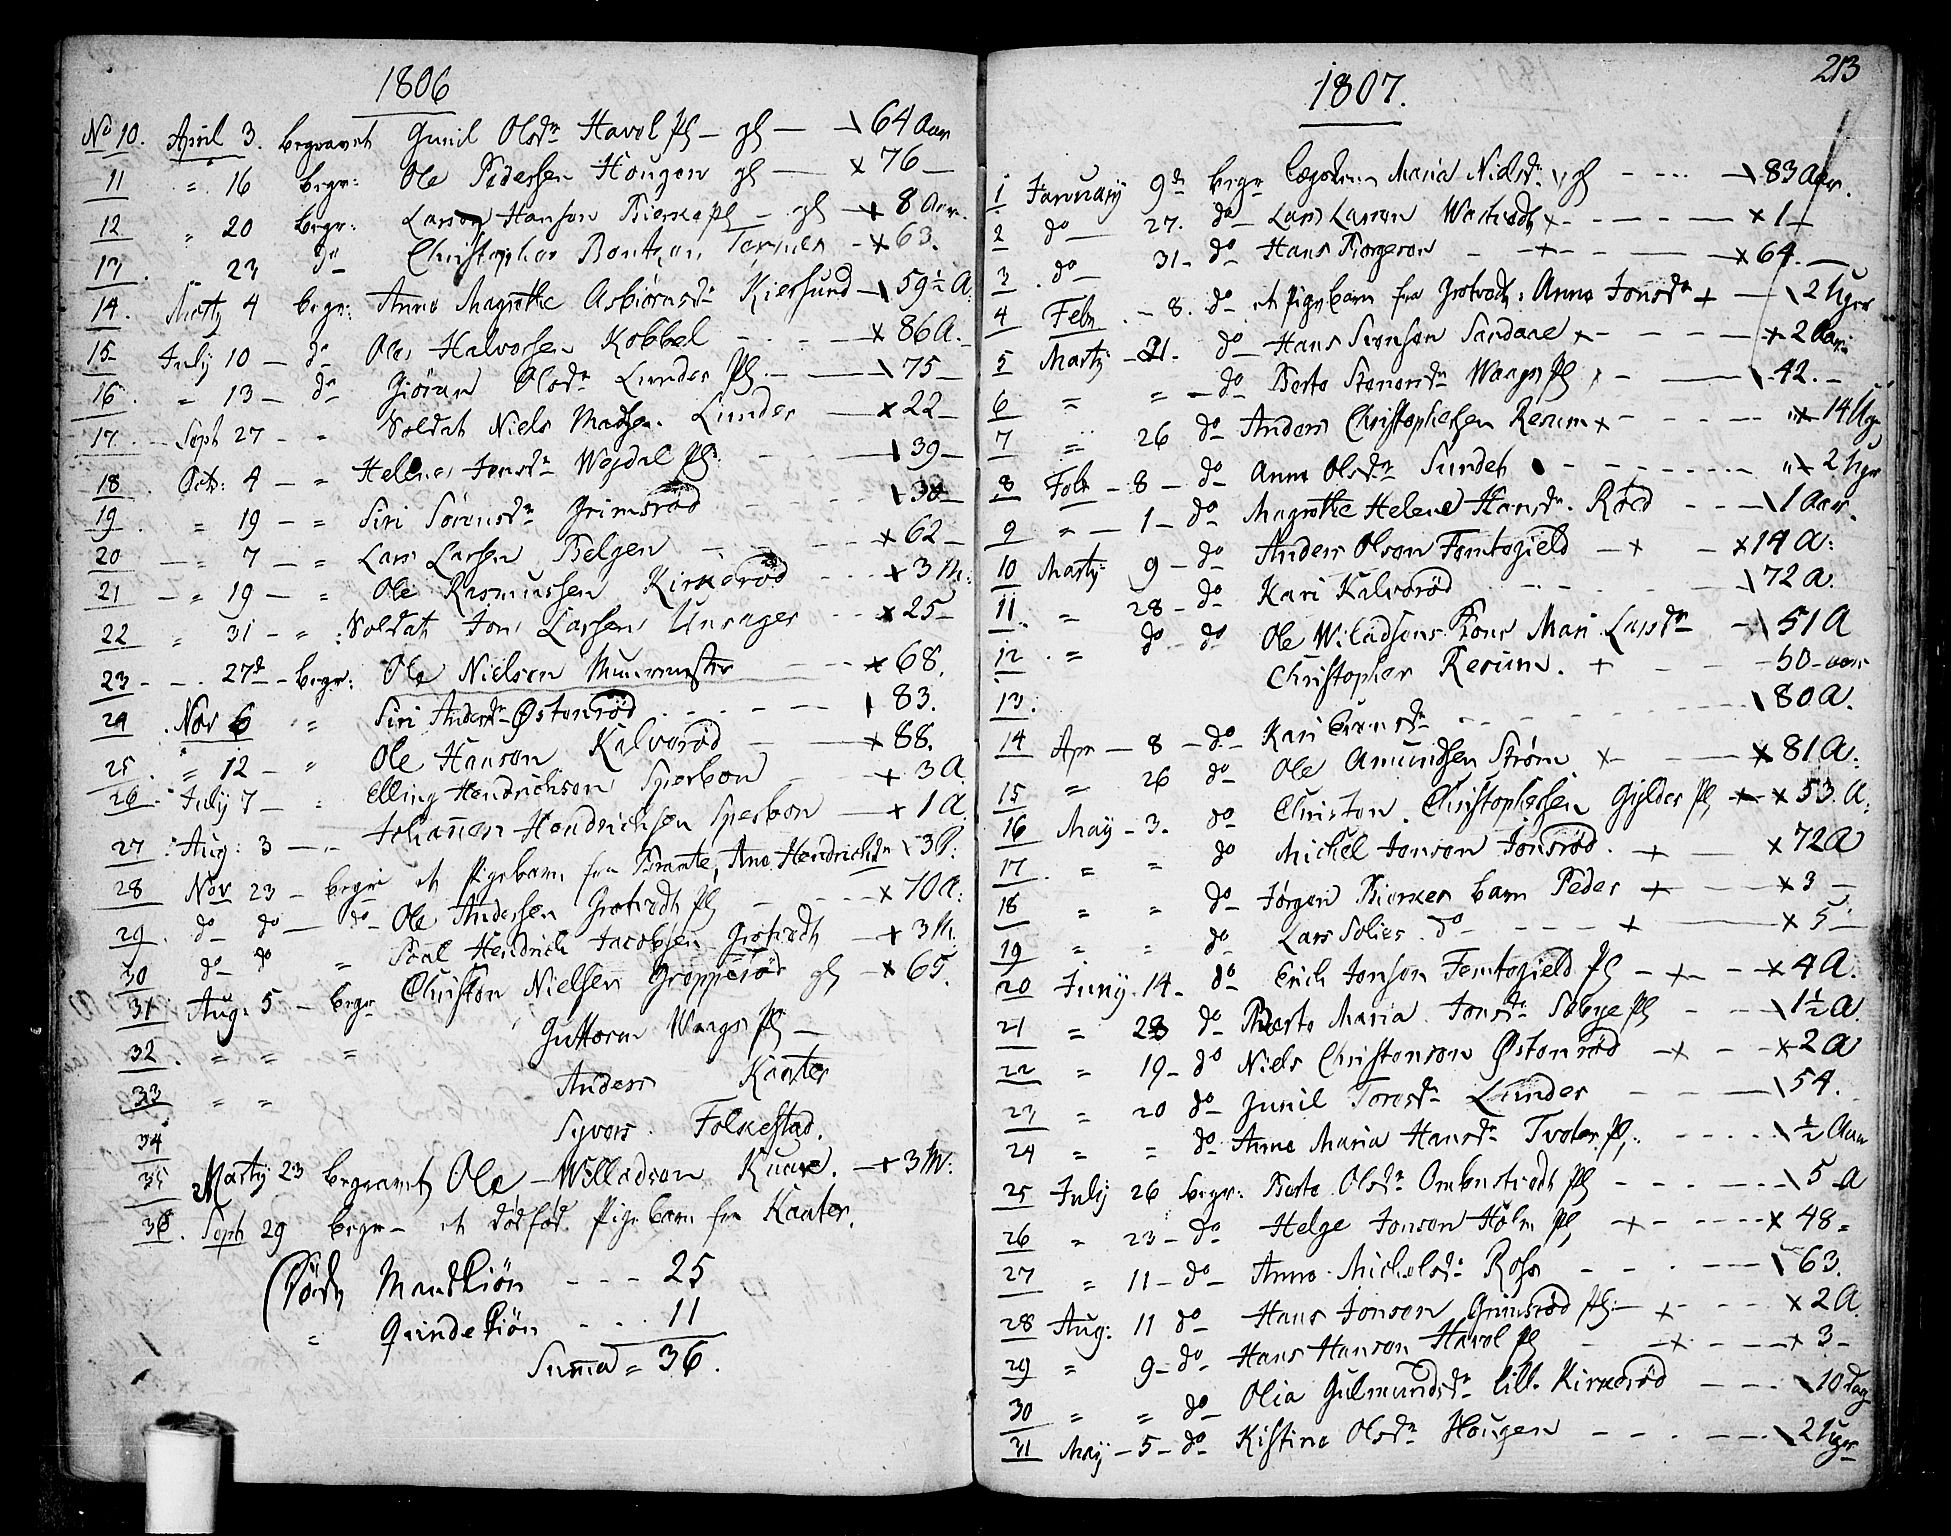 1806
No 10. April 3. begravet Gunil Olsdr Havol Pl – gl – \ 64 Aar
11 " 16 begr: Ole Pedersen Hougen gl – x 76 –
12 " 20 begr: Lars Hanson Bierke pl – gl – x 8 Aar.
13 " 23 do Christopher Bentzen Ternes – x 63.
14. Marty 4 begr: Anne Magrethe Asbiørnsdr Kiersund – \ 59½ A:
15 July 10 – do Ole Halvorsen Kobbel – x 86 A.
16. " 13 – do Giøran Olsdr Lunder Pl. – \ 75 –
17. – Sept 27 – " Soldat Niels Madsen Lunder – x 22 –
18. Octb: 4 – " Helene Jonsdr Wejdal Pl. – \ 39 –
19. " 19 – " Siri Sörensdr Grimsröd – \ 38 –
20 – " 7 – " Lars Larsen Belgen – x 62 –
21 – " 19 – " Ole Rasmussen Kirkeröd – x 3 M:
22 " 31 – " Soldat Jens Larsen Unrager – x 25 –
23 – – 27de – begr: Ole Nielsen Muurmester – x 68.
24 . Nov 6 " Siri Andersdr Østenröd – \ 83.
25. " 12 – " Ole Hanson Kalvoröd – x 88.
26. July 7 – " Elling Hendrichson Sperbon – x 3 A
27. Aug: 3 – " Johannes Hendrichsen Sperbon – x 1 A.
28 Nov 23 – begr et Pigebarn fra Brante, Ane Hendrichsdr \ 3 D:
29. do do – do Ole Andersen Grotvedt Pl – x 70 A:
30 do do " Poul Hendrich Jacobsen Grotvedt – x 3 M.
31 Aug. 5 – begr Christen Nielsen Gropperöd gl – x 65.
32. " " " Guttorm Waagen Pl –
33 " " Anders Kanter
34 Syver Folkestad.
35 Marty 23 begravet Ole Willadsen Knave. – x 3 M:
36. Sept 29 begr – et dödföd Pigebarn fra Kanter.
Döde Mandkiön – – – 25
" Qvindekiön – – . 11
Summa = 36.
213
1807.
1 January 9de begr Maria Nielsdr gl – \ 83 Aar.
2 do – 27. do Lars Larsen x – x 1 –
3 . do – 31 – do Hans Borgeson – x – x 64. –
4 Febr . – 8. do et Pigebarn fra Grotvedt, Anne Jonsdr x – \ 2 Uger
5 Marty – 21. do – Hans Svensen Sandaae x – x 2 Aar.
6 " " – do Berte Stenersdr Waagen Pl x – \ 42. –
7 " 26 do Anders Christophersen Resum x – x 14 Ug.
8 Febr – 8 – do Anne Olsdr Sundet – \ 2 Uger
9 " – 1 – do Magrethe Helene Hansdr. Röed – \ 1 Aar.
10 Marty 9 – do Anders Olson Femtegield – x – x 14 A:
11. " 28 – do Kari Kalvoröd – \ 72 A.
12 . " do – do Ole Wiladsens Kone Mari Larsdr – \ 51 A
13. Christopher Resum. x – 50 – aar
14 Apr – 8 – do Kari Evensdr – \ 80 A.
15 " 26 do Ole Amundsen Ström. x – x 81 A:
16 May – 3. do Christen Christophersen Gylder Pl x x 53. A:
17. " " do Michel Jonson Jonsröd. – x x 72 A
18 " " do Jörgen Bierkes barn Peder x – x 3 –
19 " " do Lars Solies do – x – x 5 –
20 Juny. 14 – do Erich Jonson Femtegield Pl – x – x 4 A.
21 " 28 do Berte Maria Jonsdr Sobye Pl – \ 1½ A
22 " 19 – do Niels Christenson Østenröd – x – x 2 A
23 " 20 do Gunil Toresdr Lunder – \ 54.
24 " " do Anne Maria Hansdr Tveter. Pl. – \ ½ Aar
25 July 26 begr: Berte Olsdr Ombustvedt Pl – \ 5 A
26 " 23 – do Helge Jonson Holm Pl – x – x 48 –
27 " 11 – do – Anne Michelsdr Ross – \ 63.
28 Aug: 11 do Hans Jonsen Grimsröd Pl. x – x 2 A.
29 " 9 – do Hans Hanson Havol Pl – x – x 3 –
30 " " do Olia Gulmundsdr lill. Kirkeröd – \ 10 Dag
31 May – 5 – do Kistine Olsdr Hougen – \ 2 Uger